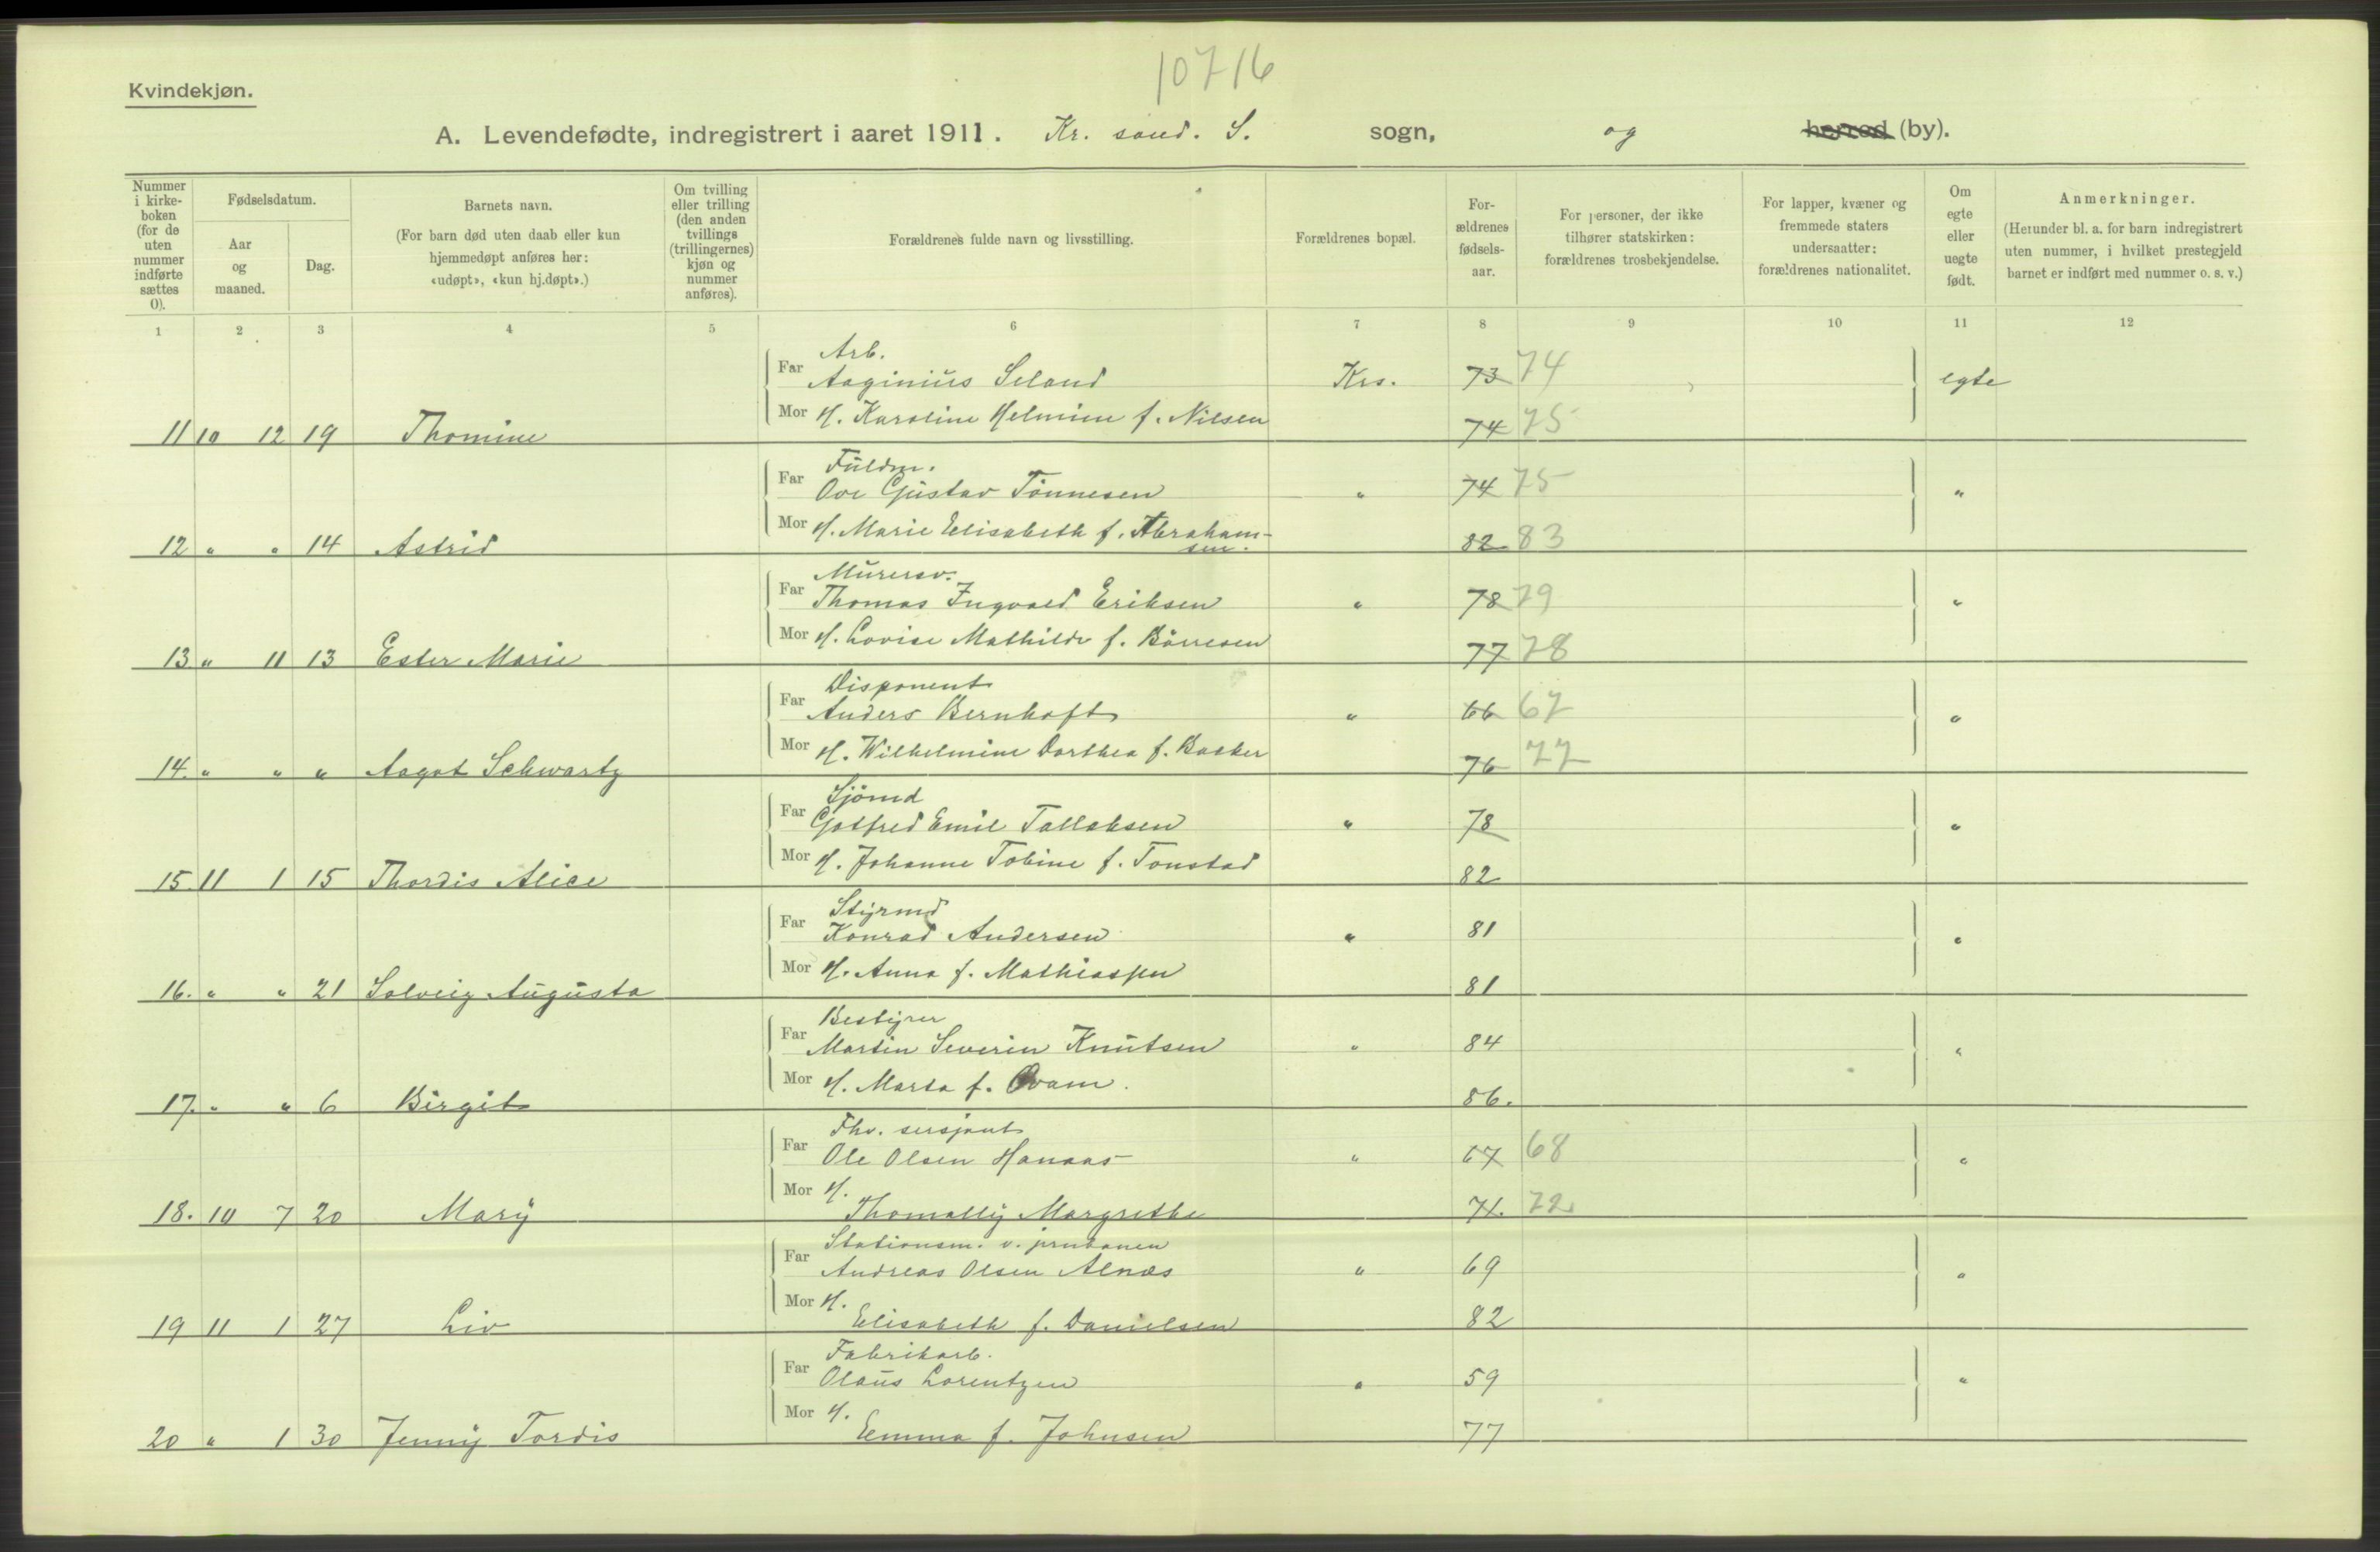 10716
Kvindekjøn.
A. Levendefødte, indregistrert i aaret 1911. Kr. sand. S. sogn, og herred (by).
Nummer i kirkeboken (for de uten nummer indførte sættes 0).
Fødselsdatum.
Aar og maaned.
Dag.
Barnets navn.
(For barn død uten daab eller kun hjemmedøpt anføres her: «udøpt», «kun hj.døpt».)
Om tvilling eller trilling (den anden tvillings (trillingernes) kjøn og nummer anføres).
Forældrenes fulde navn og livsstilling.
Forældrenes bopæl.
Forældrenes fødselsaar.
For personer, der ikke tilhører statskirken: forældrenes trosbekjendelse.
For lapper, kvæner og fremmede staters undersaatter: forældrenes nationalitet.
Om egte eller uegte født.
Anmerkninger.
(Herunder bl. a. for barn indregistrert uten nummer, i hvilket prestegjeld barnet er indført med nummer o. s. v.)
1 2 3 4 5 6 7 8 9 10 11 12
Arb.
Far Aaginius Seland Krs. 73 74 egte
Mor H. Karoline Helmine f. Nilsen 74 75
11 10 12 19 Thomine
Fuldm.
Far Ove Gustav Tönnesen " 74 75 "
Mor H. Marie Elisabeth f. Abraham-
sen. 82 83
12 " " 14 Astrid
Murersv.
Far Thomas Ingvald Eriksen " 78 79 "
Mor H. Lovise Mathilde f. Börresen 77 78
13 " 11 13 Ester Marie
Disponent
Far Anders Bernhoft " 66 67 "
Mor H. Wilhelmine Dorthea f. Backer 76 77
14. " " " Aagot Schwartz
Sjömd
Far Gotfred Emil Tallaksen " 78 "
Mor H. Johanne Tobine f. Tonstad 82
15. 11 1 15 Thordis Alice
Styrmd
Far Konrad Andersen " 81 "
Mor H. Anna f. Mathiassen 81
16. " " 21 Solveig Augusta
Bestyrer
Far Martin Severin Knutsen " 84 "
Mor H. Marta f. Kvam. 86.
17. " " 6 Birgit
Fhv. sersjant
Far Ole Olsen Hanaas " 67 68 "
Mor H.
Thomally Margrethe 71. 72
18. 10 7 20 Mary
Stationsm. v. jrnbanen
Far Andreas Olsen Alnæs " 69 "
Mor H.
Elisabeth f. Danielsen 82
19 11 1 27 Liv
Fabrikarb.
Far Olaus Lorentzen " 59 "
Mor H.
Emma f. Johnsen 77
20 " 1 30 Jenny Tordis